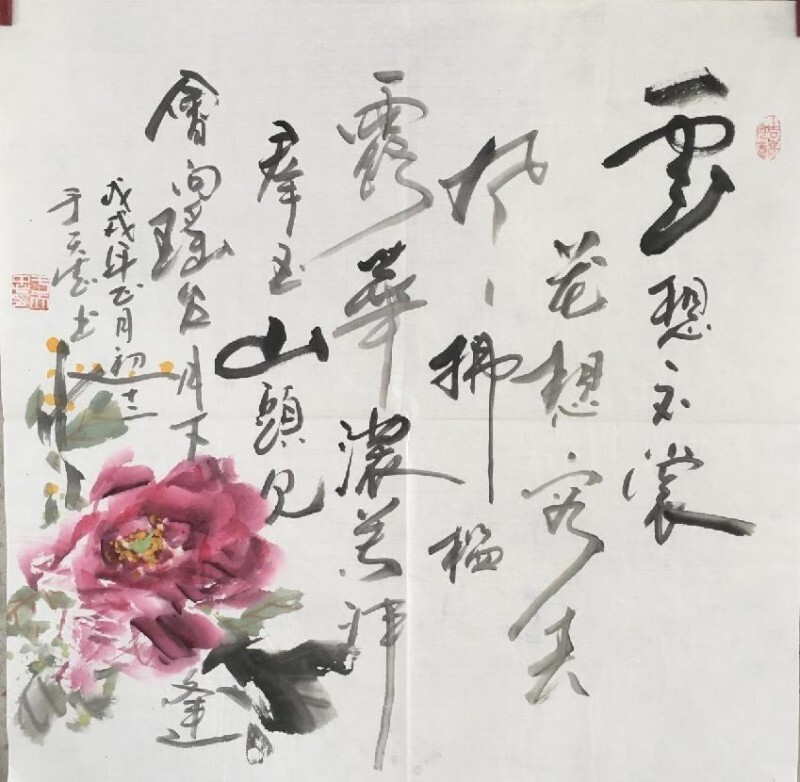 雲想衣裳
花想容春
风拂檻
露華濃若非
羣玉山頭见
會向瑤台月下逢
戊戌年正月初十二
于天书